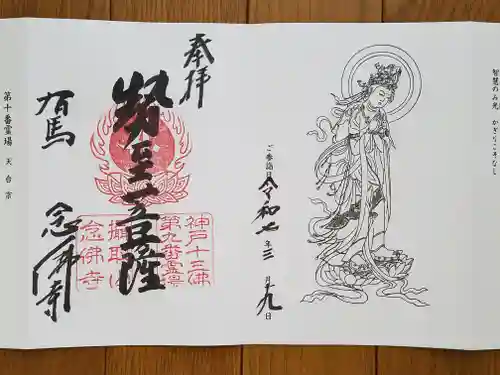 智慧のみ光　かぎりこそなし
ご参詣日 令和七年三月九日
奉拝
勢至菩薩
神戸十三佛
第九番霊場
攝取山
念佛寺
有馬 念佛寺
第十番霊場 天台宗